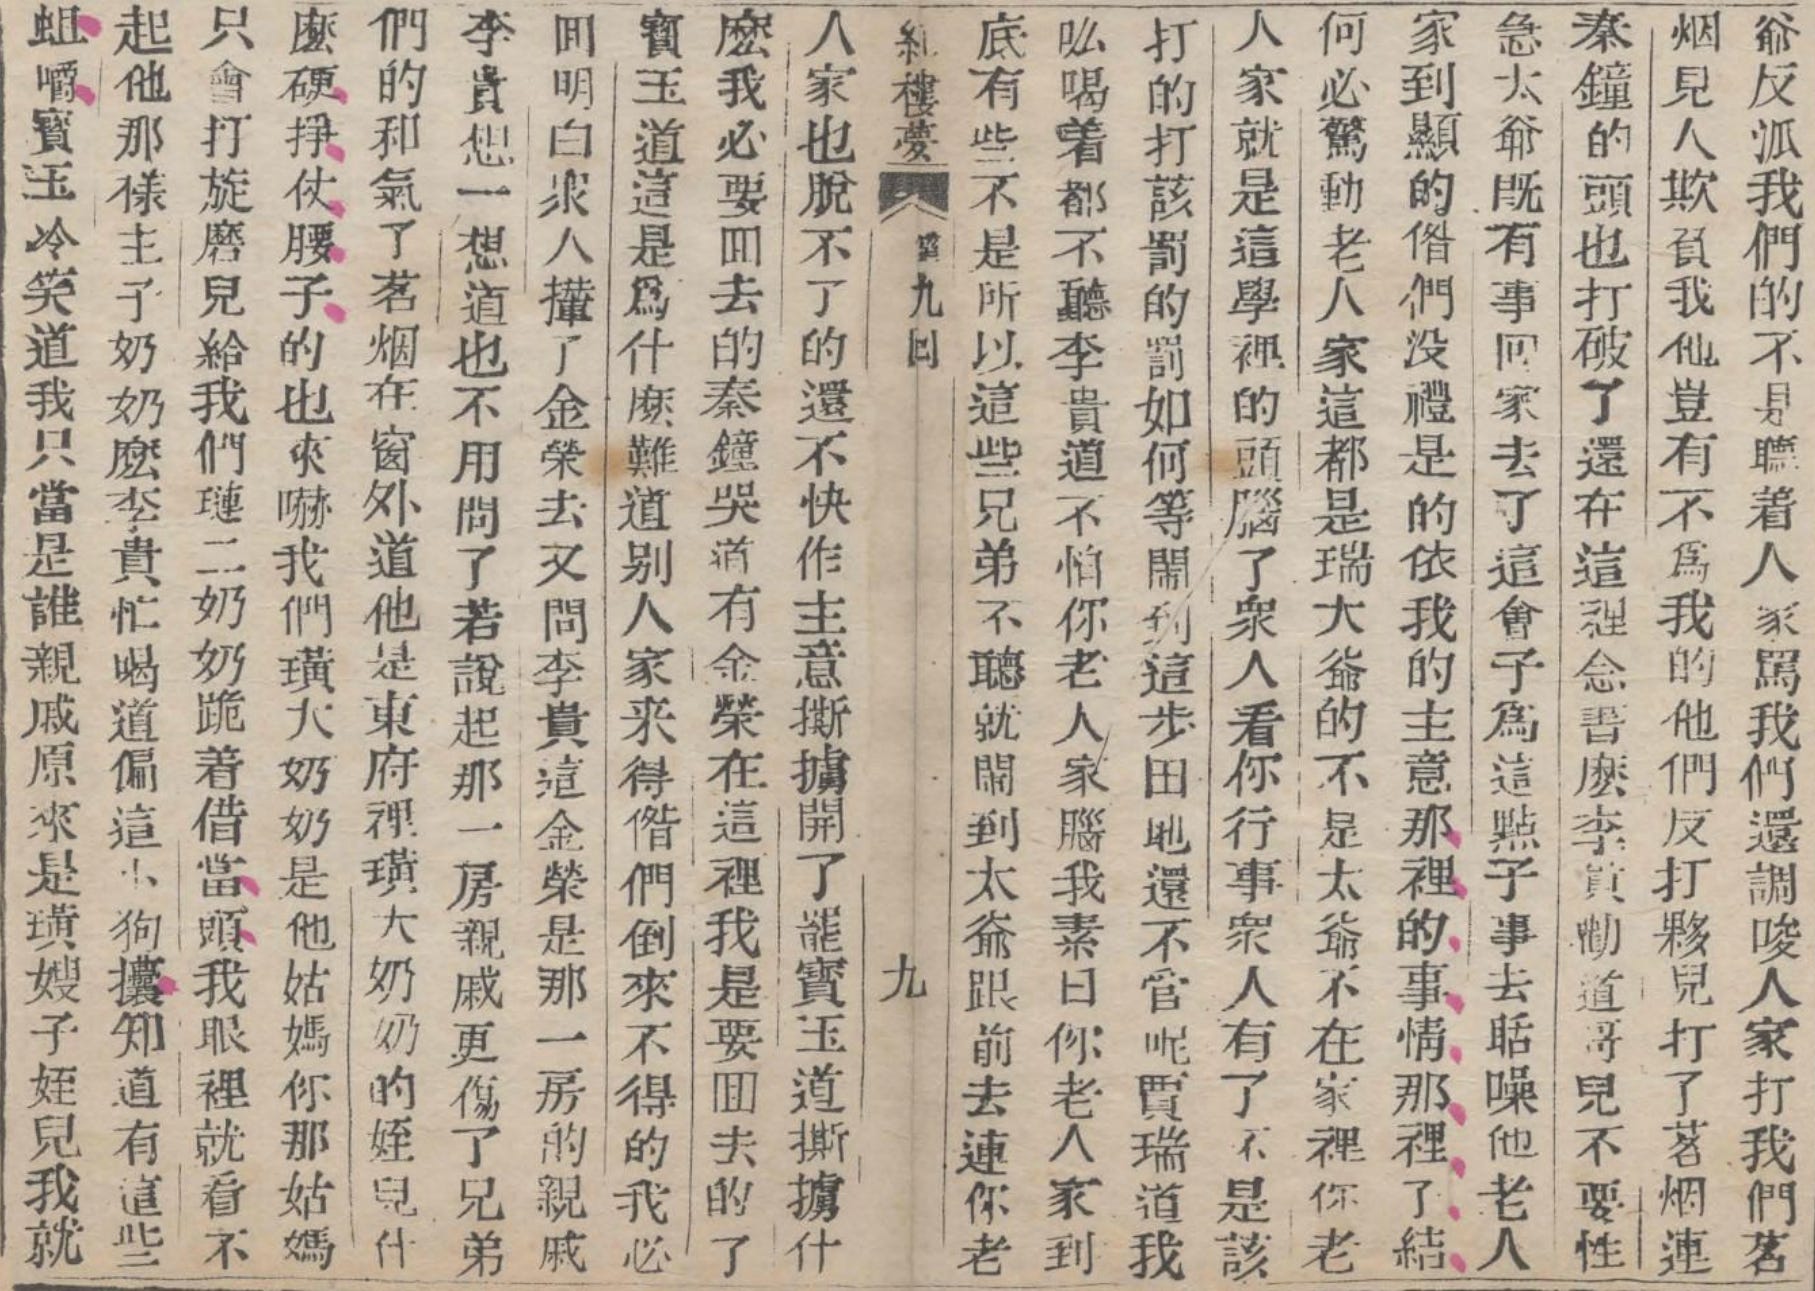 爺反派我們的不是聽着人家罵我們還調唆人家打我們茗
烟見人欺負我他豈有不爲我的他們反打夥兒打了茗烟連
秦鐘的頭也打破了還在這裡念書麽李貴勸道哥兒不要性
急太爺既有事回家去了這會子爲這點子事去聒噪他老人
家到顯的偺們没禮是的依我的主意那裡的事情那裡了結
何必驚動老人家這都是瑞大爺的不是太爺不在家裡你老
人家就是這學裡的頭腦了衆人看你行事衆人有了不是該
打的打該罰的罰如何等鬧到這步田地還不管呢賈瑞道我
吆喝着都不聽李貴道不怕你老人家腦我素日你老人家到
底有些不是所以這些兄弟不聽就鬧到太爺跟前去連你老
紅樓夢 第九回 九
人家也脫不了的還不快作主意撕擄開了罷寶玉道撕擄什
麽我必要回去的秦鐘哭道有金榮在這裡我是要回去的了
寶玉道這是爲什麽難道别人家来得偺們倒來不得的我必
回明白衆人攆了金榮去又問李貴這金榮是那一房的親戚
李貴想一想道也不用問了若說起那一房親戚更傷了兄弟
們的和氣了茗烟在窗外道他是東府裡璜大奶奶的姪兒什
麽硬掙仗腰子的也來嚇我們璜大奶奶是他姑媽你那姑媽
只會打旋磨兒給我們璉二奶奶跪着借當頭我眼裡就看不
起他那樣主子奶奶麽李貴忙喝道偏這小狗攮知道有這些
蛆嚼寶玉冷笑道我只當是誰親戚原來是璜嫂子姪兒我就